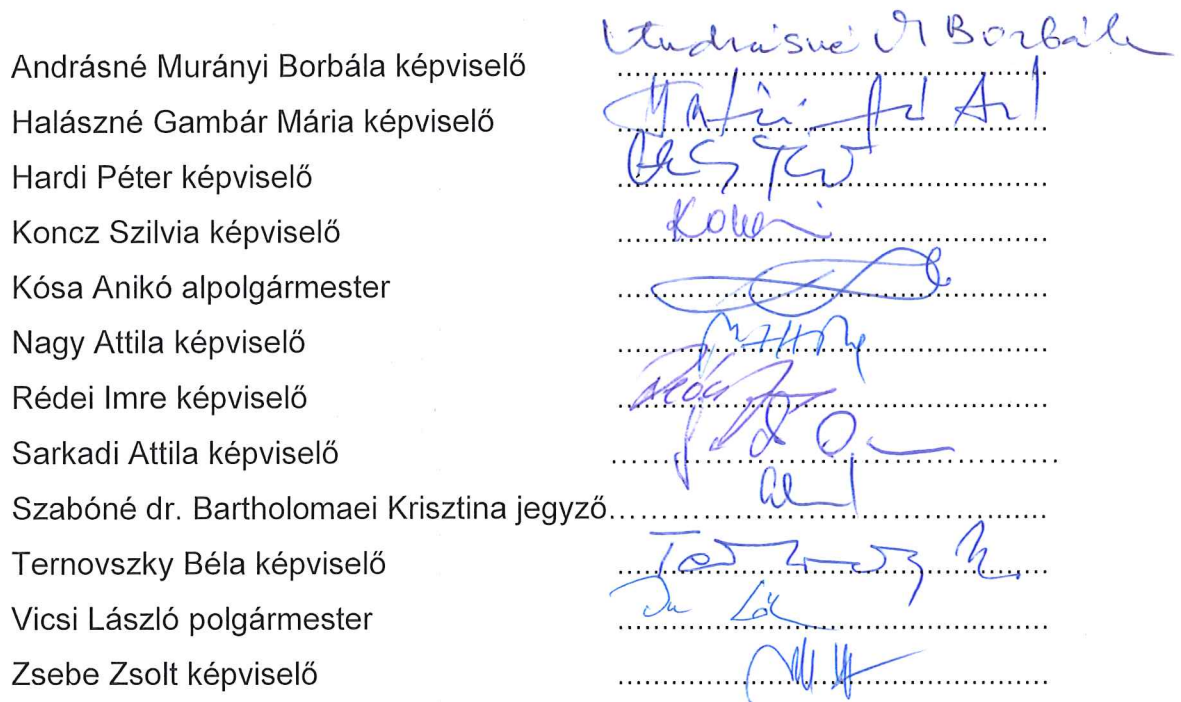 Andrásné M Borbála
Andrásné Murányi Borbála képviselő ........................................
Halászné Gambár Mária képviselő ........................................
Hardi Péter képviselő ........................................
Koncz Szilvia képviselő ........................................
Kósa Anikó alpolgármester ........................................
Nagy Attila képviselő ........................................
Rédei Imre képviselő ........................................
Sarkadi Attila képviselő ........................................
Szabóné dr. Bartholomaei Krisztina jegyző ........................................
Ternovszky Béla képviselő ........................................
Vicsi László polgármester ........................................
Zsebe Zsolt képviselő ........................................